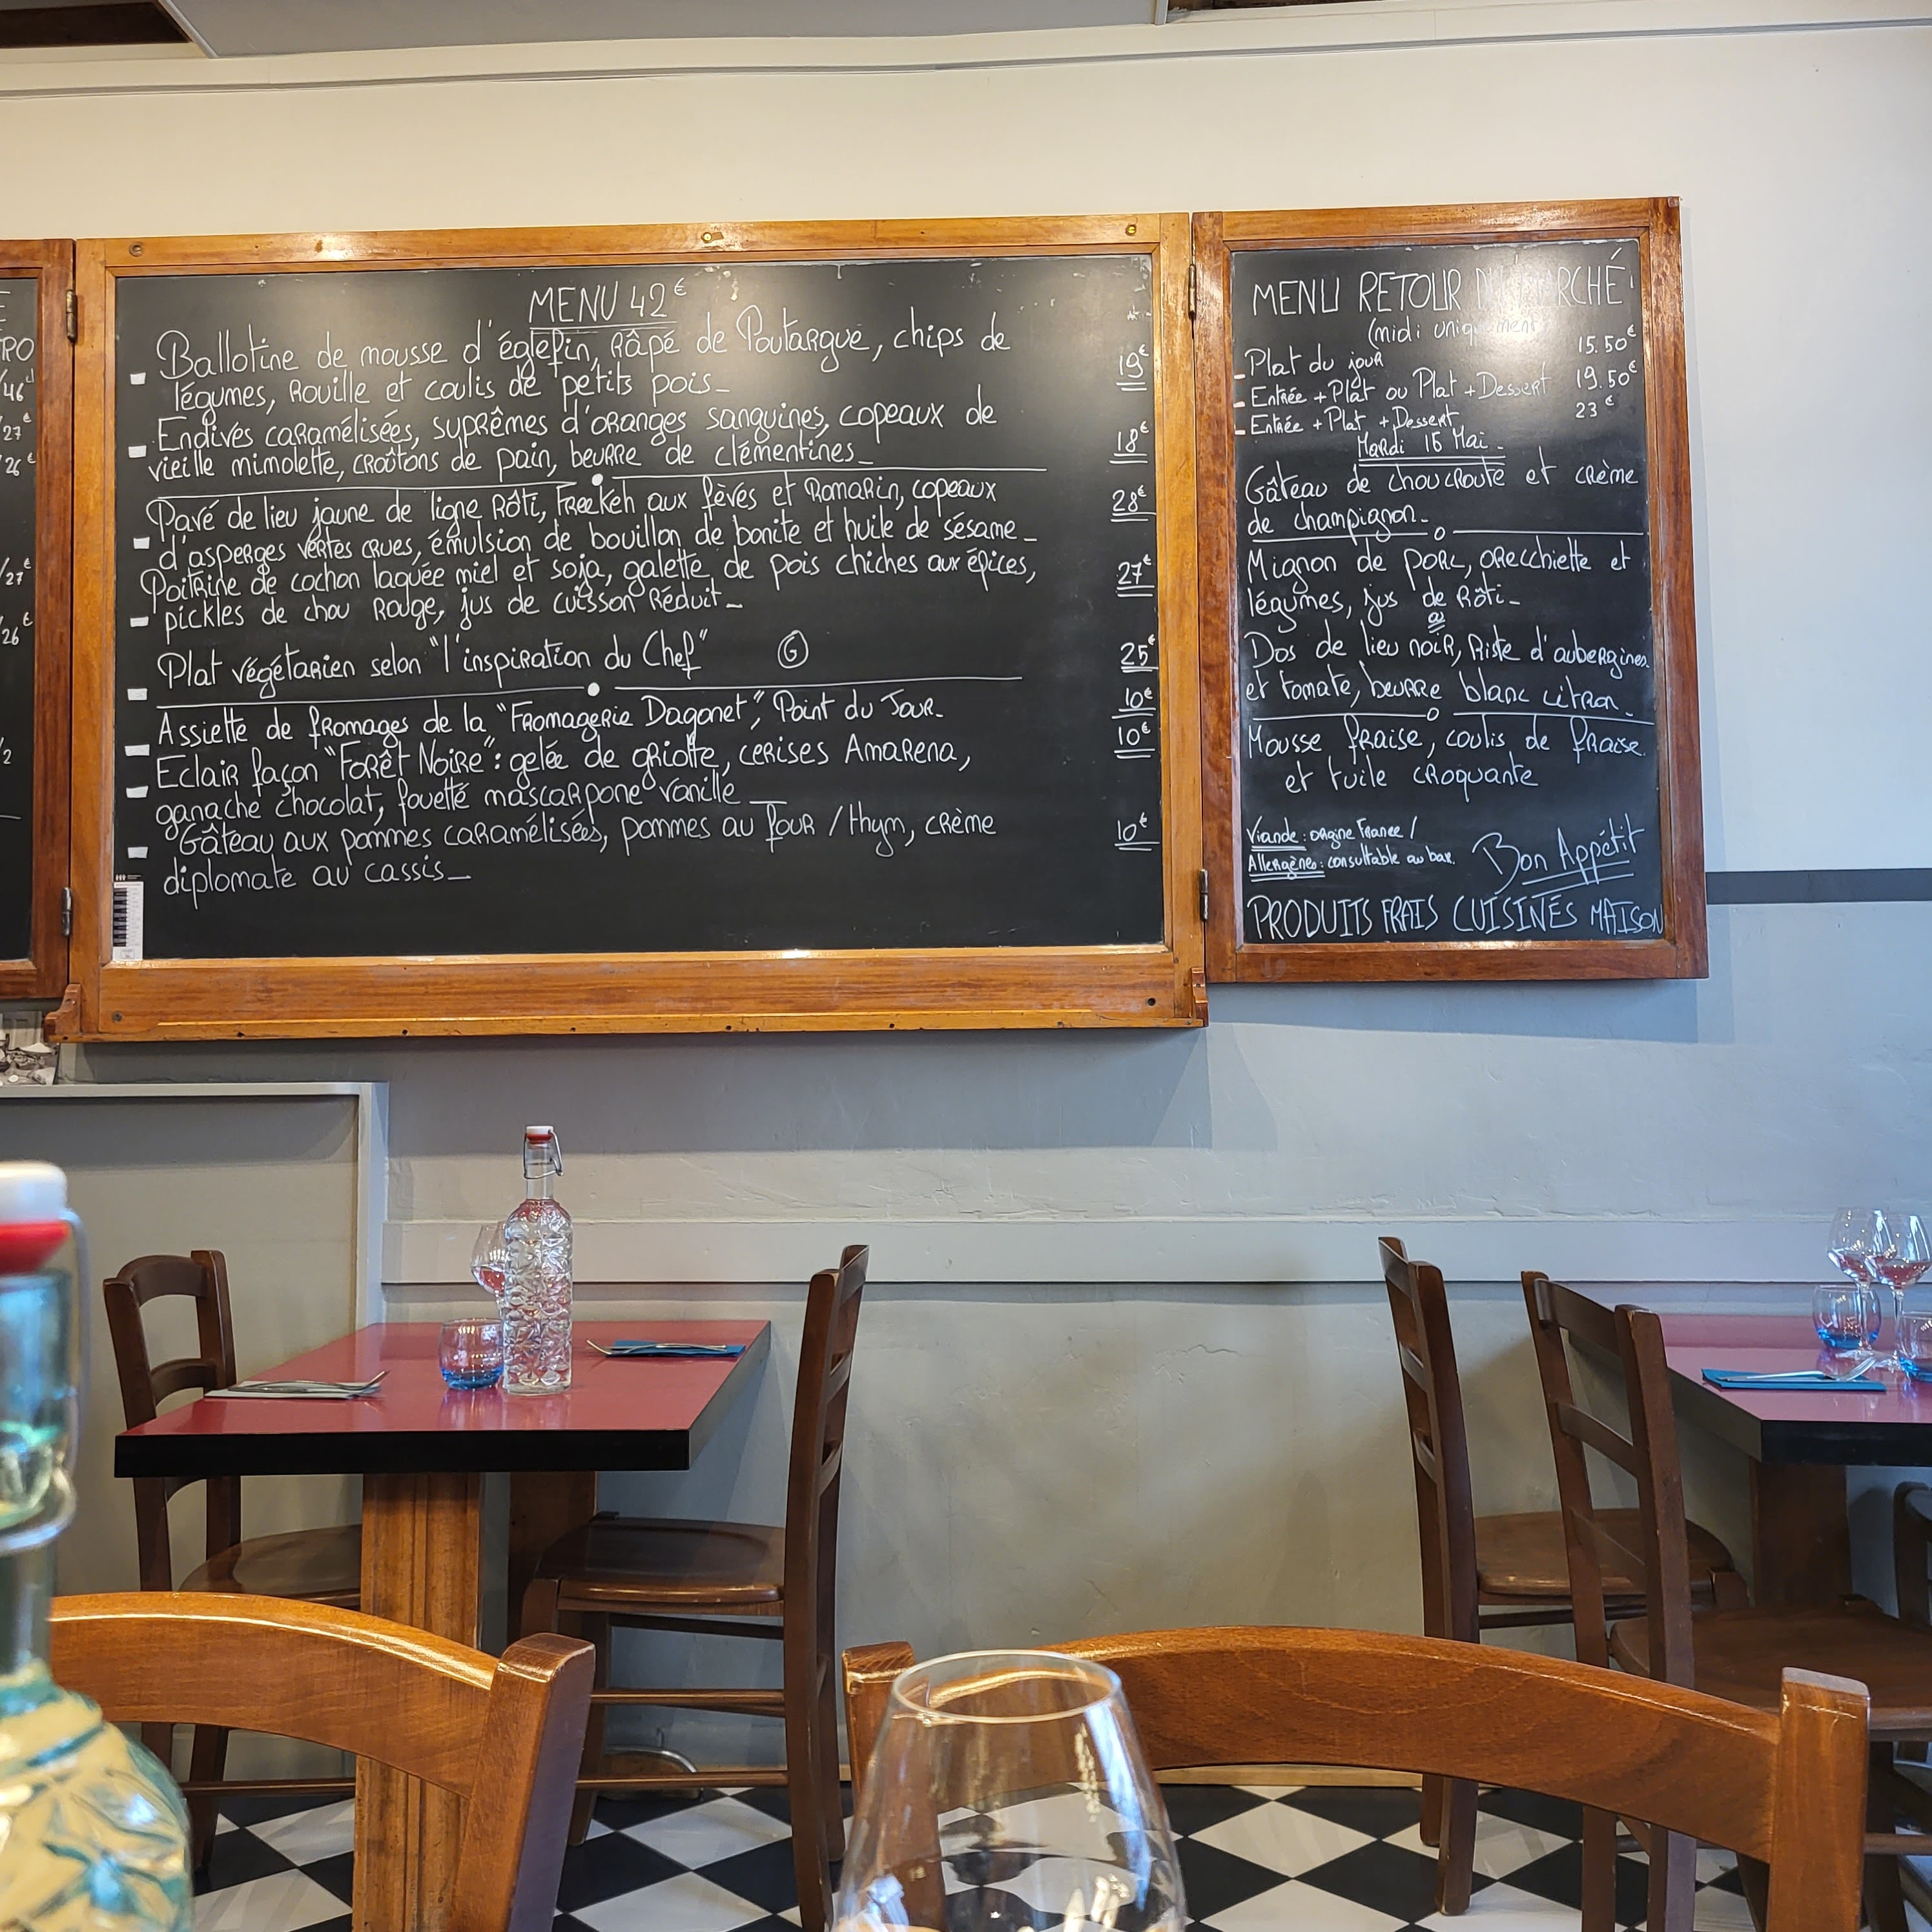 RO
/46
/27€
/26€
/27€
/26€
/2
MENU 42€
Ballotine de mousse d'églefin, Râpé de Poutargue, chips de
légumes, Rouille et coulis de petits pois_ 19€
Endives caramélisées, suprêmes d'oranges sanguines, copeaux de
vieille mimolette, croûtons de pain, beurre de clémentines_ 18€
Pavé de lieu jaune de ligne Rôti, Freekeh aux fèves et Romarin, copeaux
d'asperges vertes crues, émulsion de bouillon de bonite et huile de sésame_ 28€
Poitrine de cochon laquée miel et soja, galette de pois chiches aux épices,
pickles de chou Rouge, jus de cuisson Réduit_ 27€
Plat végétarien selon "l'inspiration du Chef" G 25€
Assiette de fromages de la "Fromagerie Dagonet", Point du Jour. 10€
Eclair façon "Forêt Noire": gelée de griotte, cerises Amarena, 10€
ganache chocolat, fouetté mascarpone vanille_
Gâteau aux pommes caramélisées, pommes au four / thym, crème 10€
diplomate au cassis_
MENU RETOUR DU MARCHÉ
(midi uniquement
Plat du jour 15.50€
Entrée + Plat ou Plat + Dessert 19.50€
Entrée + Plat + Dessert 23€
Mardi 16 Mai.
Gâteau de choucroute et crème
de champignon_
Mignon de porc, orecchiette et
légumes, jus de Rôti_
ou
Dos de lieu noir, Riste d'aubergines
et tomate, beurre blanc citron_
Mousse fraise, coulis de fraise
et tuile croquante
Viande: origine France /
Allergènes: consultable au bar.
Bon Appétit
PRODUITS FRAIS CUISINÉS MAISON